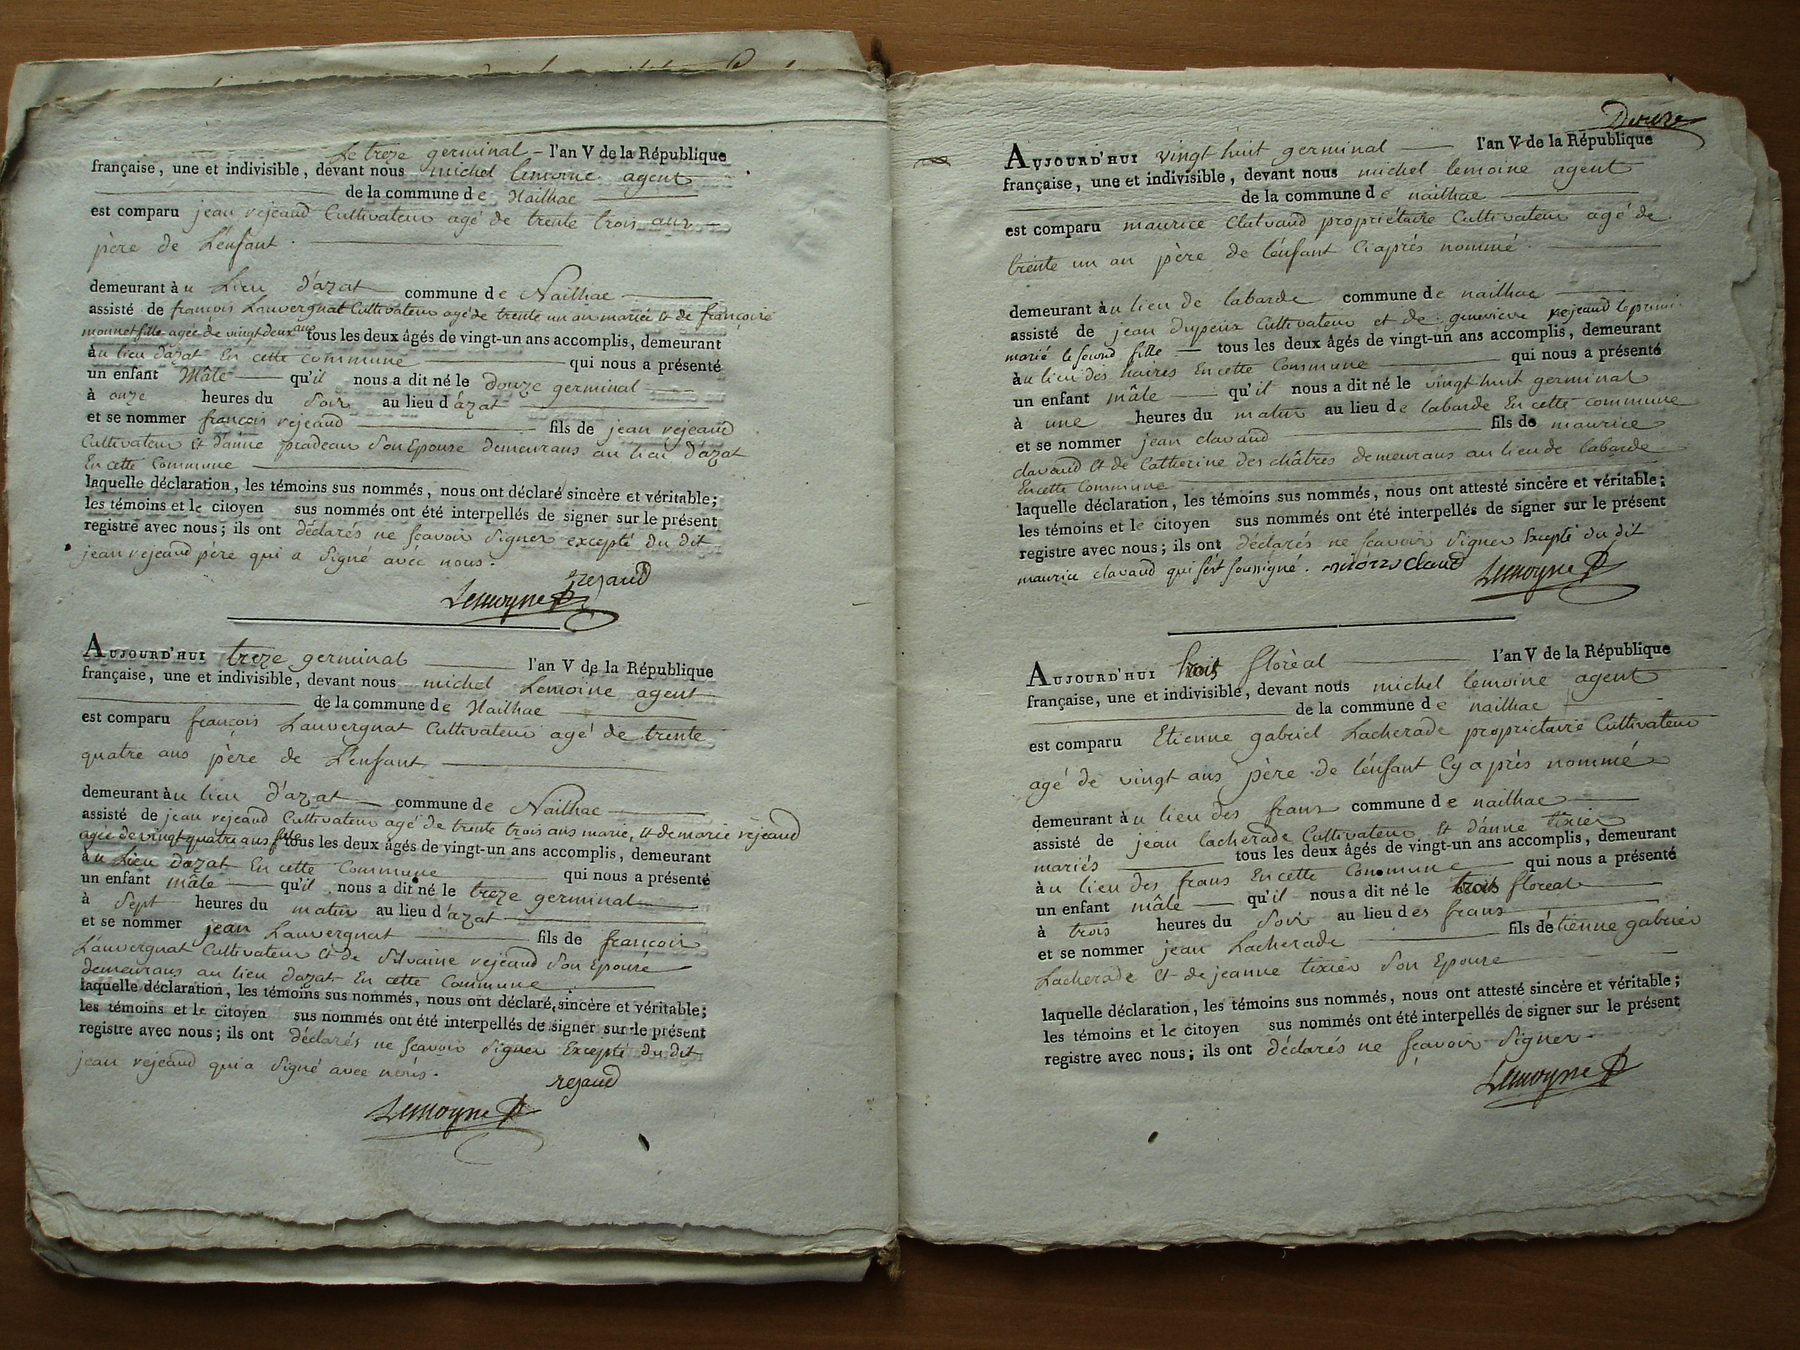 Le treze germinal l'an V de la République
française, une et indivisible, devant nous michel lemoine agent
de la commune de Nailhac
est comparu jean rejeaud Cultivateur agé de trente trois ans
père de L'enfant.
demeurant au Lieu d'azat commune de Nailhac
assisté de françois Lauvergnat Cultivateur agé de trente un an mariée et de françoise
monnet fille agée de vingt deux ans tous les deux âgés de vingt-un ans accomplis, demeurant
àu lieu d'azat En cette commune qui nous a présenté
un enfant Mâle qu'il nous a dit né le douze germinal
à onze heures du Soir au lieu d'azat
et se nommer françois rejeaud fils de jean rejeaud
Cultivateur et d'anne pradeau Son Epouse demeurans au lieu d'azat
En cette Commune
laquelle déclaration, les témoins sus nommés, nous ont déclaré sincère et véritable;
les témoins et le citoyen sus nommés ont été interpellés de signer sur le présent
registre avec nous; ils ont déclarés ne sçavoir Signer excepté du dit
jean rejeaud père qui a Signé avec nous.
rejaud
Lemoyne
AUJOURD'HUI treze germinal l'an V de la République
française, une et indivisible, devant nous michel Lemoine agent
de la commune de Nailhac
est comparu françois Lauvergnat Cultivateur agé de trente
quatre ans père de L'enfant
demeurant àu lieu d'azat commune de Nailhac
assisté de jean rejeaud Cultivateur agé de trente trois ans marié, et de marie rejeaud
agée de vingt quatre ans fille tous les deux âgés de vingt-un ans accomplis, demeurant
àu Lieu d'azat En cette Commune qui nous a présenté
un enfant mâle qu'il nous a dit né le treze germinal
à Sept heures du matin au lieu d'azat
et se nommer jean Lauvergnat fils de françois
Lauvergnat Cultivateur et de Silvaine rejeaud Son Epouse
demeurans au lieu d'azat En cette Commune
laquelle déclaration, les témoins sus nommés, nous ont déclaré, sincère et véritable;
les témoins et le citoyen sus nommés ont été interpellés de signer sur le présent
registre avec nous; ils ont déclarés ne sçavoir Signer Excepté du dit
jean rejeaud qui a Signé avec nous.
rejaud
Lemoyne
AUJOURD'HUI vingt huit germinal l'an V de la République
française, une et indivisible, devant nous michel lemoine agent
de la commune de nailhac
est comparu maurice Clavaud propriétaire Cultivateur agé de
trente un an père de l'enfant Ciaprés nommé.
demeurant àu lieu de labarde commune de nailhac
assisté de jean dupeux Cultivateur et de genevieve rejeaud le premier
marié le second fille tous les deux âgés de vingt-un ans accomplis, demeurant
àu lieu des En cette Commune qui nous a présenté
un enfant mâle qu'il nous a dit né le vingt huit germinal
à une heures du matin au lieu de labarde En cette commune
et se nommer jean clavaud fils de maurice
clavaud et de Catherine des châtres demeurans au lieu de labarde
En cette Commune
laquelle déclaration, les témoins sus nommés, nous ont attesté sincère et véritable;
les témoins et le citoyen sus nommés ont été interpellés de signer sur le présent
registre avec nous; ils ont déclarés ne sçavoir Signer Excepté du dit
maurice clavaud qui s'est soussigné.
Lemoyne
AUJOURD'HUI trois floréal l'an V de la République
française, une et indivisible, devant nous michel lemoine agent
de la commune de nailhac
est comparu Etienne gabriel Lacherade proprietaire Cultivateur
agé de vingt ans père de l'enfant Cy après nommé
demeurant àu lieu des frans commune de nailhac
assisté de jean lacherade Cultivateur et d'anne tixier
mariés tous les deux âgés de vingt-un ans accomplis, demeurant
àu lieu des frans En cette Commune qui nous a présenté
un enfant mâle qu'il nous a dit né le trois floreal
à trois heures du Soir au lieu des frans
et se nommer jean Lacherade fils de étienne gabriel
Lacherade et de jeanne tixier Son Epouse
laquelle déclaration, les témoins sus nommés, nous ont attesté sincère et véritable;
les témoins et le citoyen sus nommés ont été interpellés de signer sur le présent
registre avec nous; ils ont déclarés ne sçavoir Signer
Lemoyne